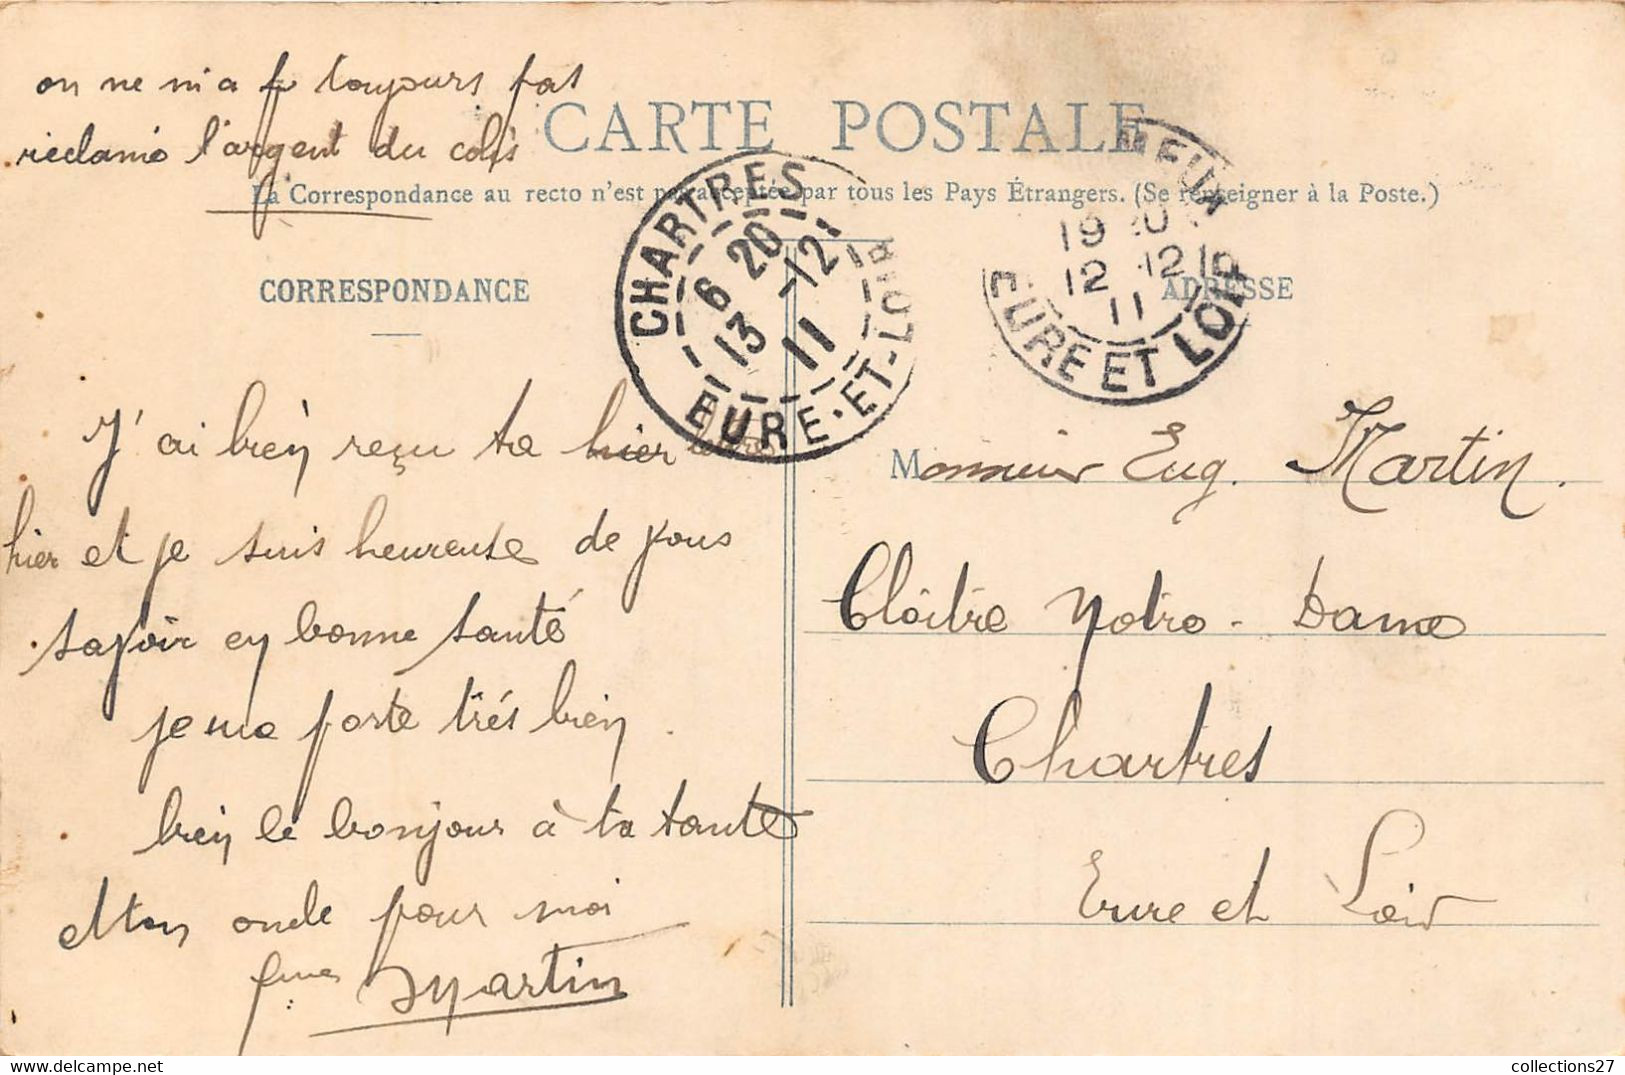 on ne m'a p toujours pas
réclamé l'argent du colis
CARTE POSTALE
La Correspondance au recto n'est pas acceptée par tous les Pays Étrangers. (Se renseigner à la Poste.)
CORRESPONDANCE
ADRESSE
CHARTRES
6 20
13 -12
11
EURE-ET-LOIR
19 20
12 12
11
EURE ET LOIR
J'ai bien reçu ta hier
hier et je suis heureuse de vous
savoir en bonne santé
je me porte très bien
bien le bonjour à ta tante
et ton oncle pour moi
fme Martin
Monsieur Eug. Martin.
Cloître Notre-Dame
Chartres
Eure et Loir
collections27